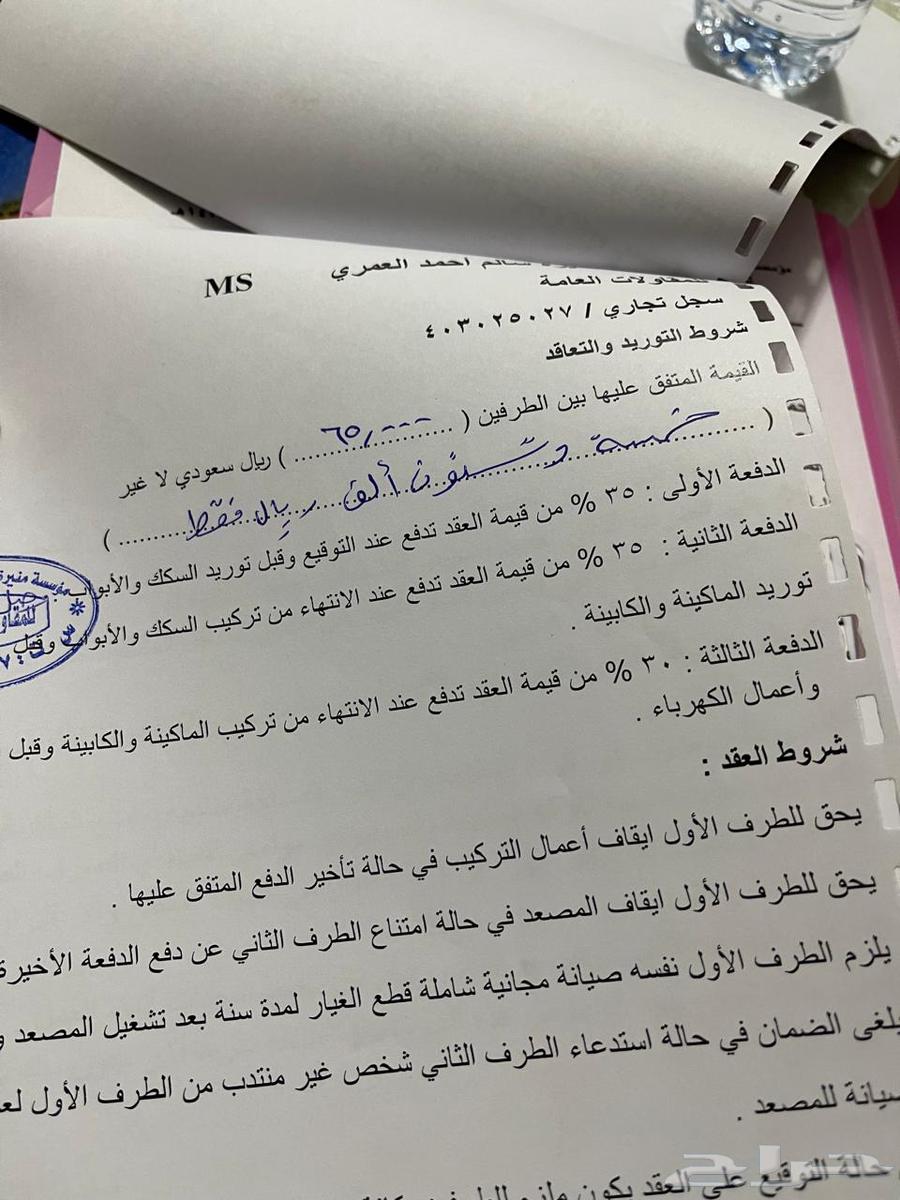 سالم احمد العمري
MS
للمقاولات العامة
سجل تجاري / ٤٠٣٠٢٥٠٢٧
شروط التوريد والتعاقد
القيمة المتفق عليها بين الطرفين ( ٦٥,٠٠٠ ) ريال سعودي لا غير
( خمسة وستون ألف ريال فقط )
الدفعة الأولى : ٣٥ % من قيمة العقد تدفع عند التوقيع وقبل توريد السكك والأبواب
الدفعة الثانية : ٣٥ % من قيمة العقد تدفع عند الانتهاء من تركيب السكك والأبواب وقبل
توريد الماكينة والكابينة .
الدفعة الثالثة : ٣٠ % من قيمة العقد تدفع عند الانتهاء من تركيب الماكينة والكابينة وقبل
وأعمال الكهرباء .
مؤسسة منيرة
شروط العقد :
يحق للطرف الأول ايقاف أعمال التركيب في حالة تأخير الدفع المتفق عليها .
يحق للطرف الأول ايقاف المصعد في حالة امتناع الطرف الثاني عن دفع الدفعة الأخيرة
يلزم الطرف الأول نفسه صيانة مجانية شاملة قطع الغيار لمدة سنة بعد تشغيل المصعد و
يلغى الضمان في حالة استدعاء الطرف الثاني شخص غير منتدب من الطرف الأول لع
صيانة للمصعد .
حالة التوقيع على العقد يكون
حراج